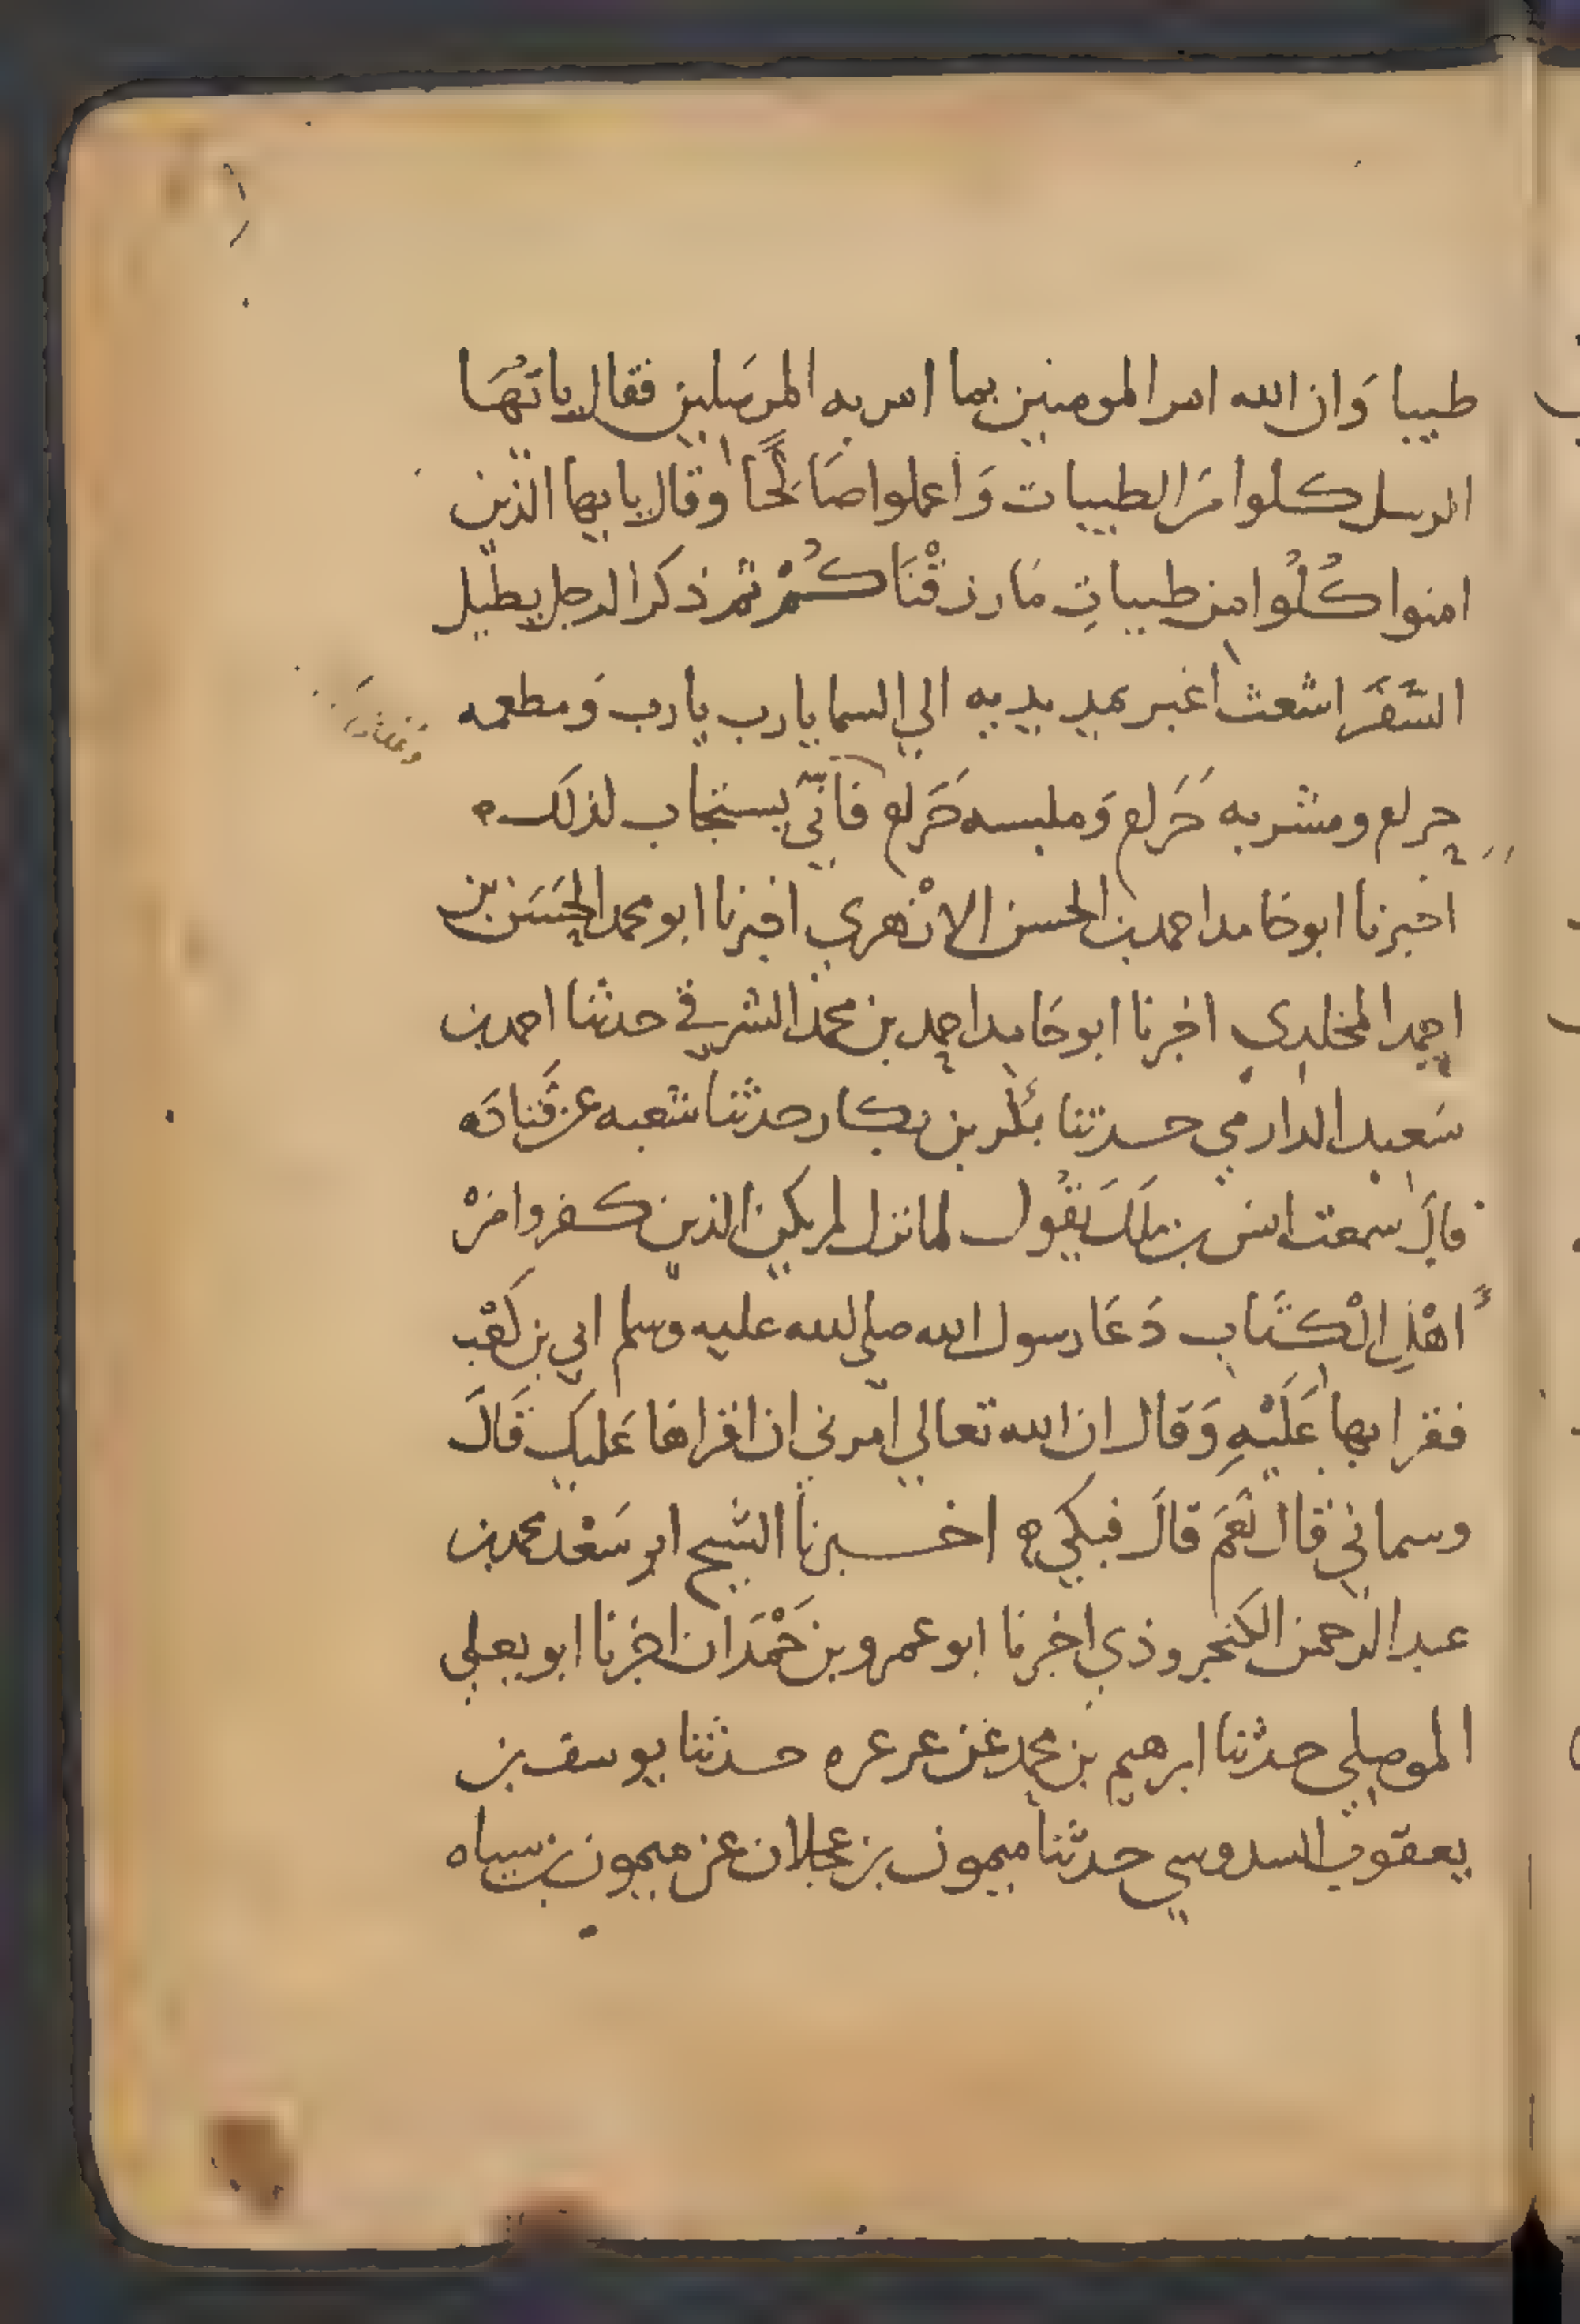 طيبا وَان الله امر المومنين بما امر به المرسَلين فقال يا ايُّهَا
الرسل كلوا مِنَ الطيبات وَاعملوا صَالحًا وقال يا يها الذين
امنوا كُلُوا من طيباتِ مَا رزقْنَاكُمْ ثم ذكر الرجل يطيل
السَّفَرَ اشعث اغبر يمد يديه الي السما يا رب يا رب وَمطعمه
حرام ومشربه حَرام وَملبسه حَرام فانّي يستجاب لذلك ه
اخبرنا ابو حَامد احمد بن الحسن الازْهري اخبرنا ابو محمد الحَسَن بن
احمد المخلدي اخبرنا ابو حَامد احمد بن محمد الشرقي حدثنا احمد بن
سَعيد الدارمي حدثنا بكر بن بكار حدثنا شعبه عن قَتادَه
قالَ سمعت انس بن ملك يَقُول لما نزل لم يكن الذين كفروا منْ
اهْلِ الْكتَاب دَعَا رسول الله صلي الله عليه وسلم ابي بن كَعْب
فقرا بها عَلَيْهِ وَقال ان الله تعالي امرني ان اقراها عَليك قَالَ
وسماني قال نَعَمْ قالَ فبكي ه اخبرنا الشيخ ابو سَعْد محمد بن
عبد الرحمن الكَنجروذي اخبرنا ابو عمرو بن حَمْدَان اخبرنا ابو يعلي
الموصلي حدثنا ابرهيم بن محمد بن عرعره حدثنا يوسف بن
يعقوب السدوسي حدثنا ميمون بن عجلان عن ميمون بن سياه